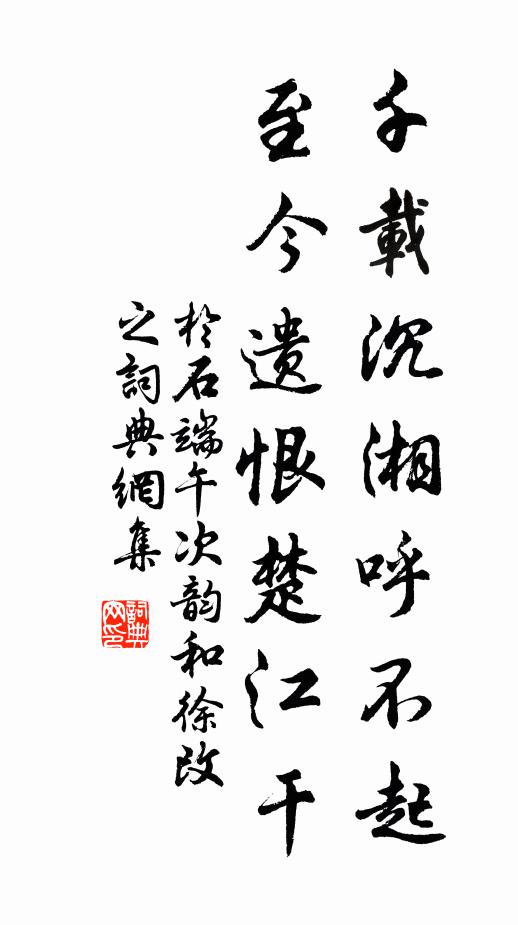 千載沉湘呼不起
至今遗恨楚江干
於石端午次韵和徐改
之詞典網集
詞典
网印